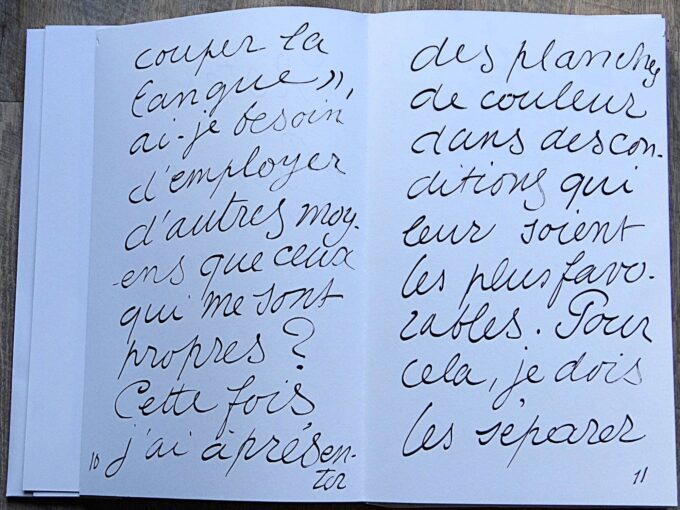 couper la
langue»,
ai-je besoin
d'employer
d'autres moy-
ens que ceux
qui me sont
propres ?
Cette fois
j'ai à présen-
ter
10
des planches
de couleur
dans des con-
ditions qui
leur soient
les plus favo-
rables. Pour
cela, je dois
les séparer
11